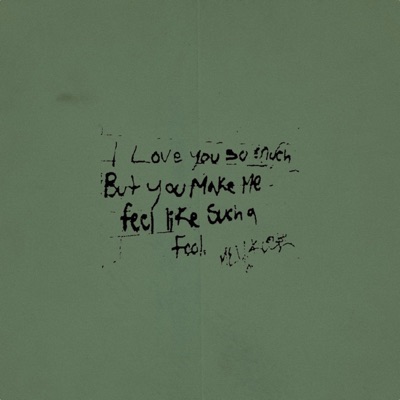 I Love you so much
But you Make Me
feel like Such a
Fool